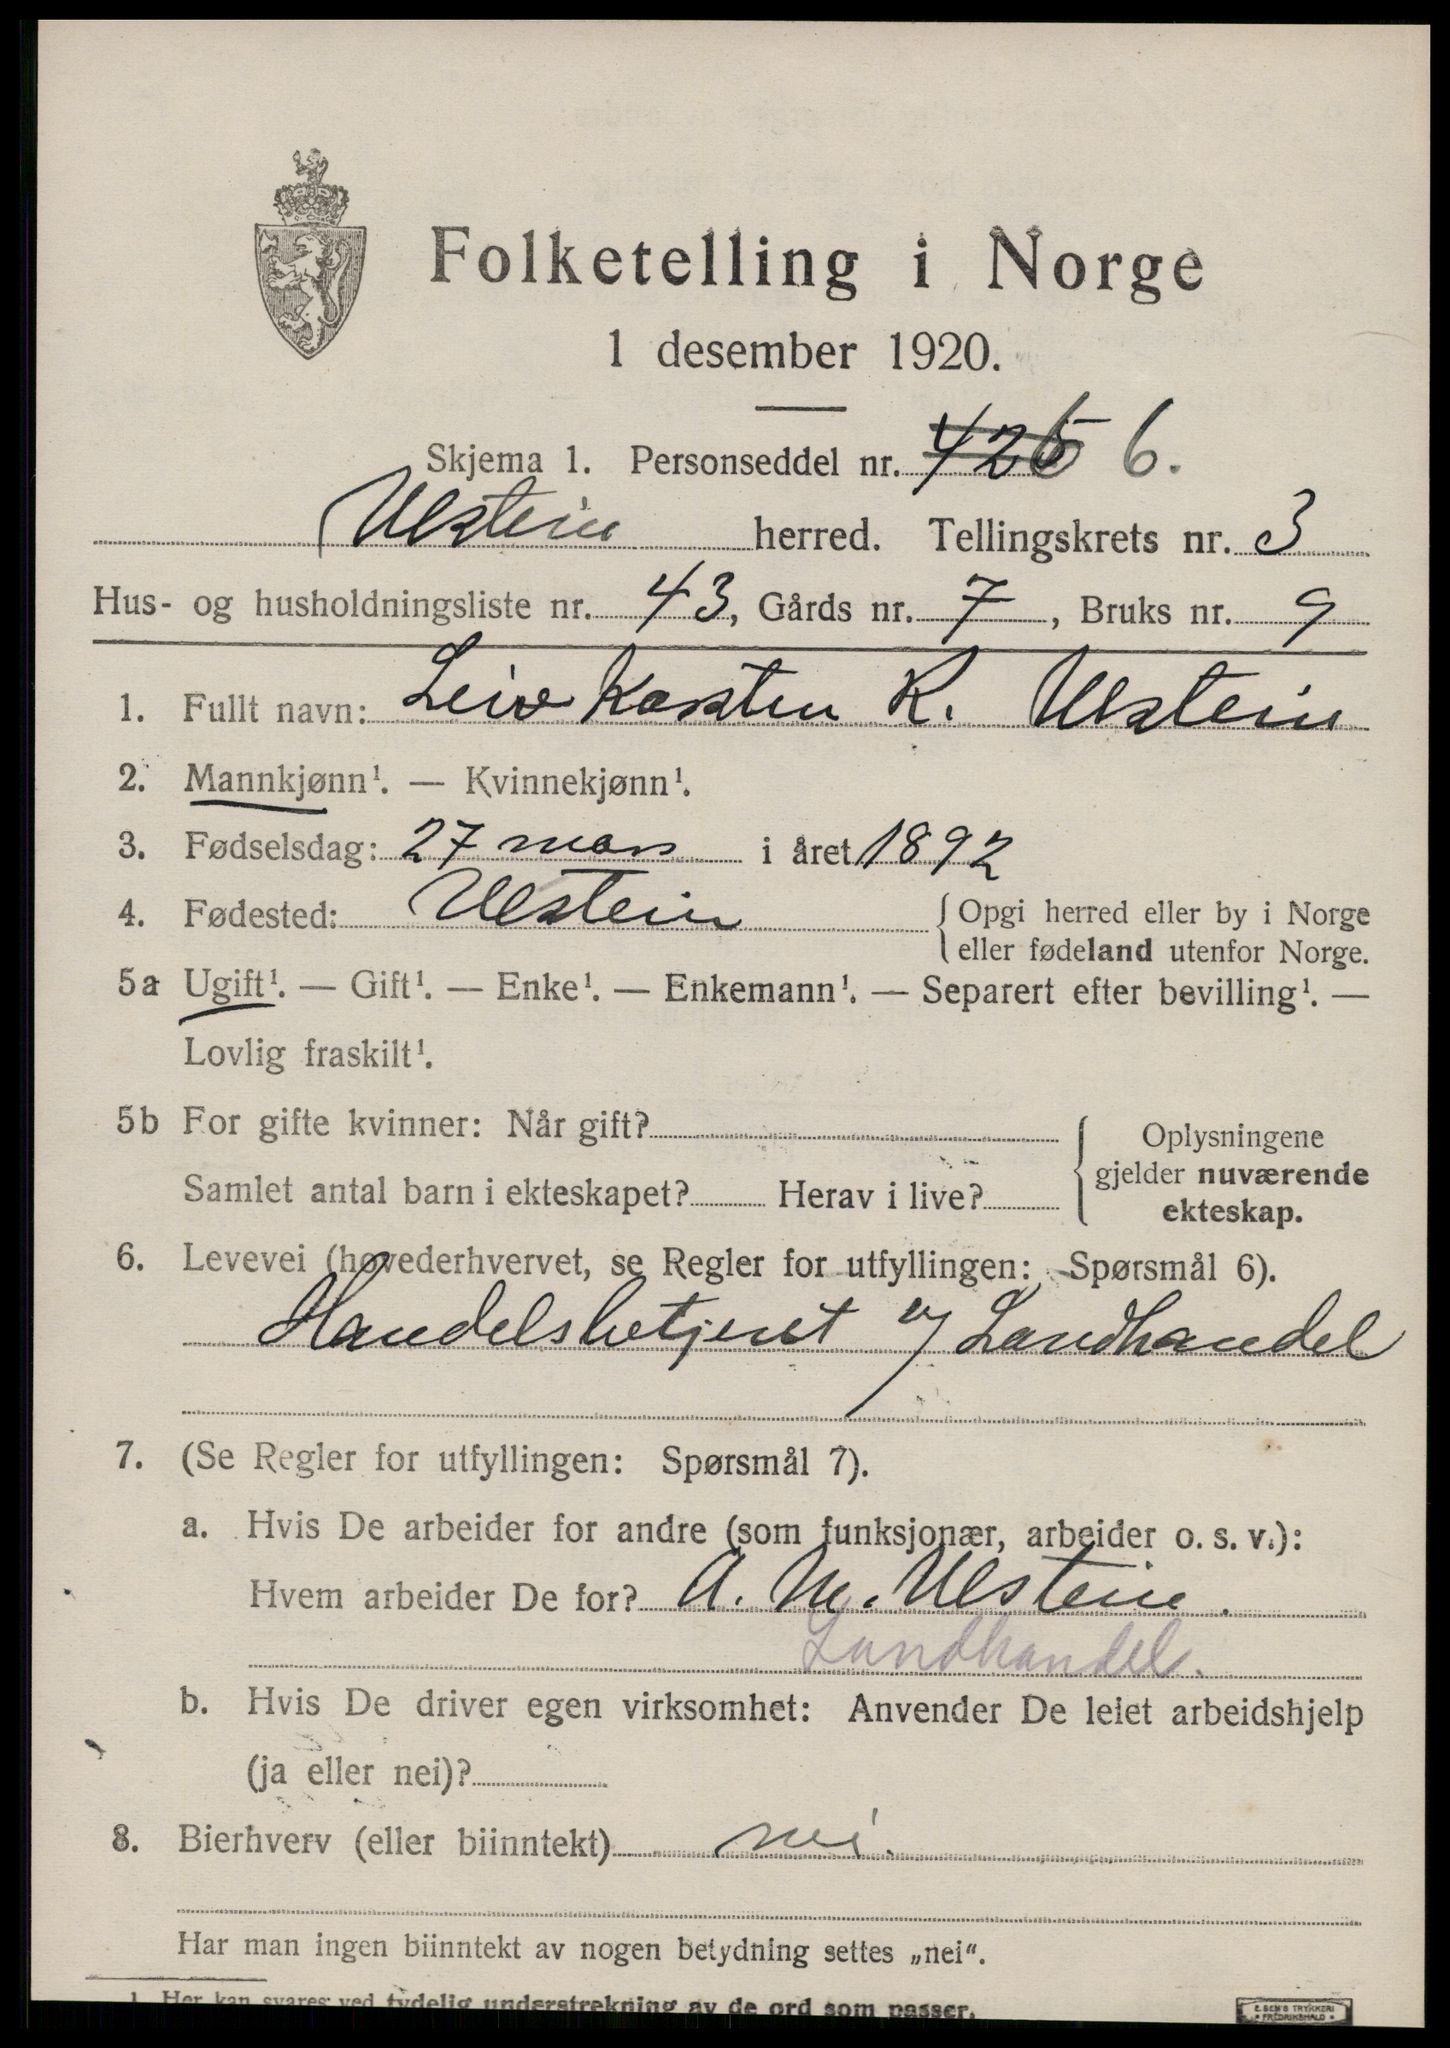 Folketelling i Norge
1 desember 1920.
Skjema 1. Personseddel nr. 6.
Ulstein herred. Tellingskrets nr. 3
Hus- og husholdningsliste nr. 43, Gårds nr. 7, Bruks nr. 9
1. Fullt navn: Leiv Karsten K. Ulstein
2. Mannkjønn¹. — Kvinnekjønn¹.
3. Fødselsdag: 27 mars i året 1892
4. Fødested: Ulstein { Opgi herred eller by i Norge
eller fødeland utenfor Norge.
5a Ugift¹. — Gift¹. — Enke¹. — Enkemann¹. — Separert efter bevilling¹. —
Lovlig fraskilt¹.
5b For gifte kvinner: Når gift?
Samlet antal barn i ekteskapet? Herav i live?
{ Oplysningene
gjelder nuværende
ekteskap.
6. Levevei (hovederhvervet, se Regler for utfyllingen: Spørsmål 6).
Handelsbetjent v/ Landhandel
7. (Se Regler for utfyllingen: Spørsmål 7).
a. Hvis De arbeider for andre (som funksjonær, arbeider o. s. v.):
Hvem arbeider De for? A. M. Ulstein.
Landhandel.
b. Hvis De driver egen virksomhet: Anvender De leiet arbeidshjelp
(ja eller nei)?
8. Bierhverv (eller biinntekt) nei.
Har man ingen biinntekt av nogen betydning settes „nei“.
1 Her kan svares ved tydelig understrekning av de ord som passer.
E. SEM'S TRYKKERI
FREDRIKSHALD